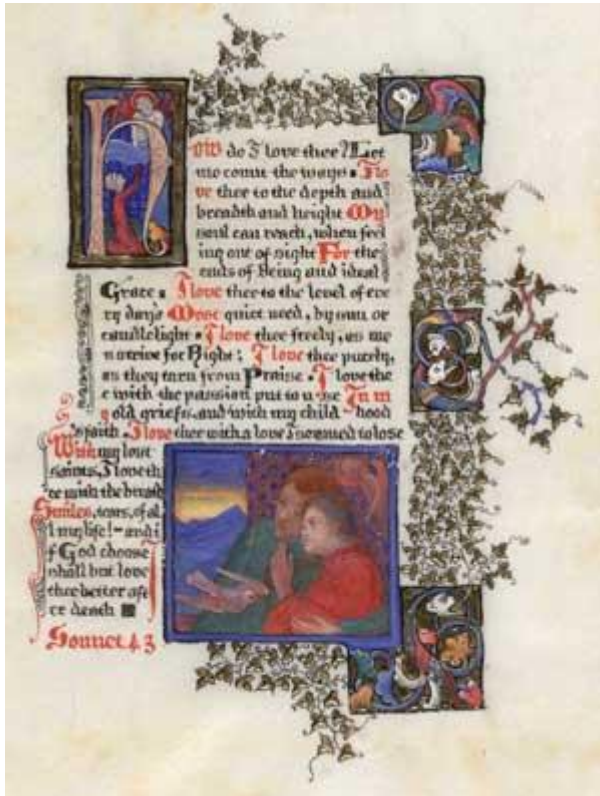 How do I love thee? Let
me count the ways. I lo
ve thee to the depth and
breadth and height My
soul can reach, when feel
ing out of sight For the
ends of Being and ideal
Grace. I love thee to the level of eve
ry day's Most quiet need, by sun or
candlelight. I love thee freely, as me
n strive for Right; I love thee purely,
as they turn from Praise. I love the
e with the passion put to use In m
y old griefs, and with my child-hood
's faith. I love thee with a love I seemed to lose
With my lost
saints, I love th
ee with the breath
Smiles, tears, of al
l my life!- and i
f God choose
shall but love
thee better aft
er death
Sonnet 43